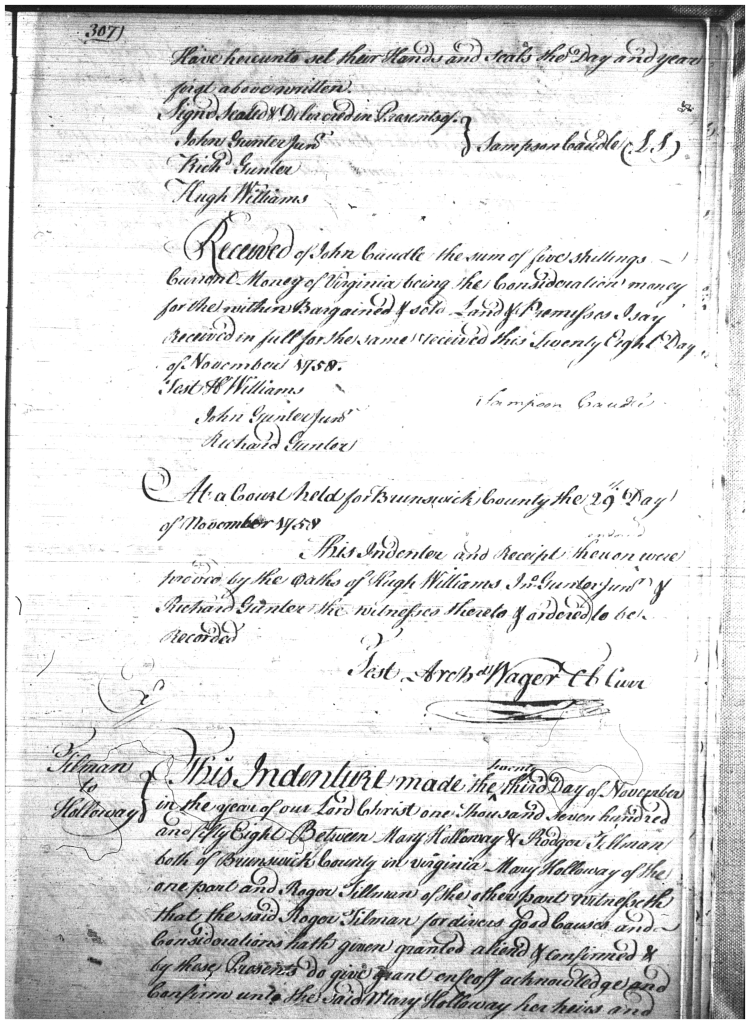 307)
Have hereunto set their Hands and Seals the Day and year
first above written.
Signd Seald & Delivered in Presents of
John Gunter Junr } Sampson Caudle (LS)
Richd Gunter
Hugh Williams
Received of John Caudle the sum of five shillings
Current Money of Virginia being the Consideration money
for the within Bargained & sold Land & Premisses I say
Received in full for the same received this Twenty Eight Day
of November 1758.
Test H Williams
Sampson Caudle
John Gunter Junr
Richard Gunter
At a Court held for Brunswick County the 29th Day
of November 1758
This Indenter and Receipt thereon were
proved by the Oaths of Hugh Williams Jno Gunter Junr &
Richard Gunter the witnesses thereto & ordered to be
Recorded
Test Archd Wager Cl Cur
Tilman
to
Holloway }
twenty
This Indenture made the third Day of November
in the year of our Lord Christ one Thousand Seven hundred
and fifty Eight Between Mary Holloway & Rodger Tillman
both of Brunswick County in Virginia Mary Holloway of the
one part and Roger Tillman of the other part witnesseth
that the said Roger Tilman for divers good Causes and
Considerations hath given granted aliend & confirmed &
by these Presents do give grant enfeoff acknowledge and
Confirm unto the said Mary Holloway her heirs and